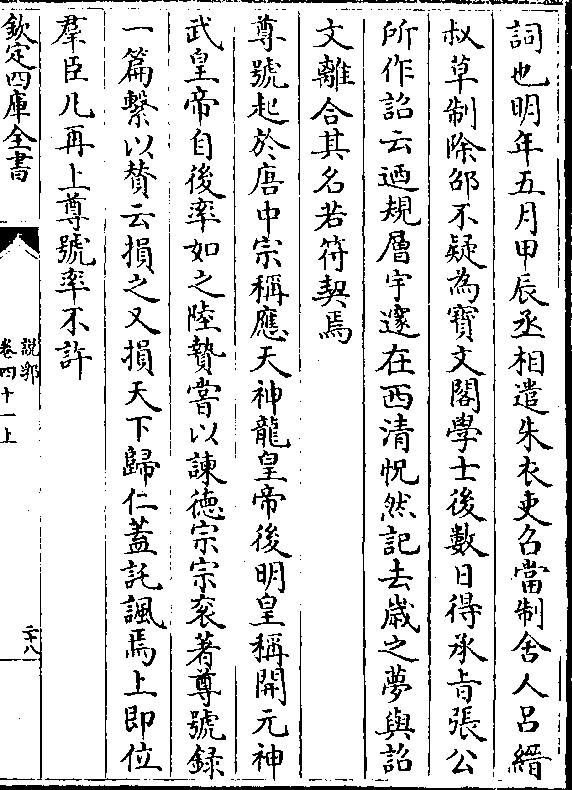 詞也明年五月甲辰丞相遣朱衣吏召當制舍人呂縉
叔草制除邵不疑為寶文閣學士後數日得承旨張公
所作詔云迺規層宇邃在西清怳然記去歲之夢與詔
文離合其名若符契焉
尊號起於唐中宗稱應天神龍皇帝後明皇稱開元神
武皇帝自後率如之陸贄嘗以諫德宗宗衮著尊號録
一篇繫以賛云損之又損天下歸仁蓋託諷焉上即位
羣臣凡再上尊號率不許
欽定四庫全書
説郛
卷四十一上
二十八